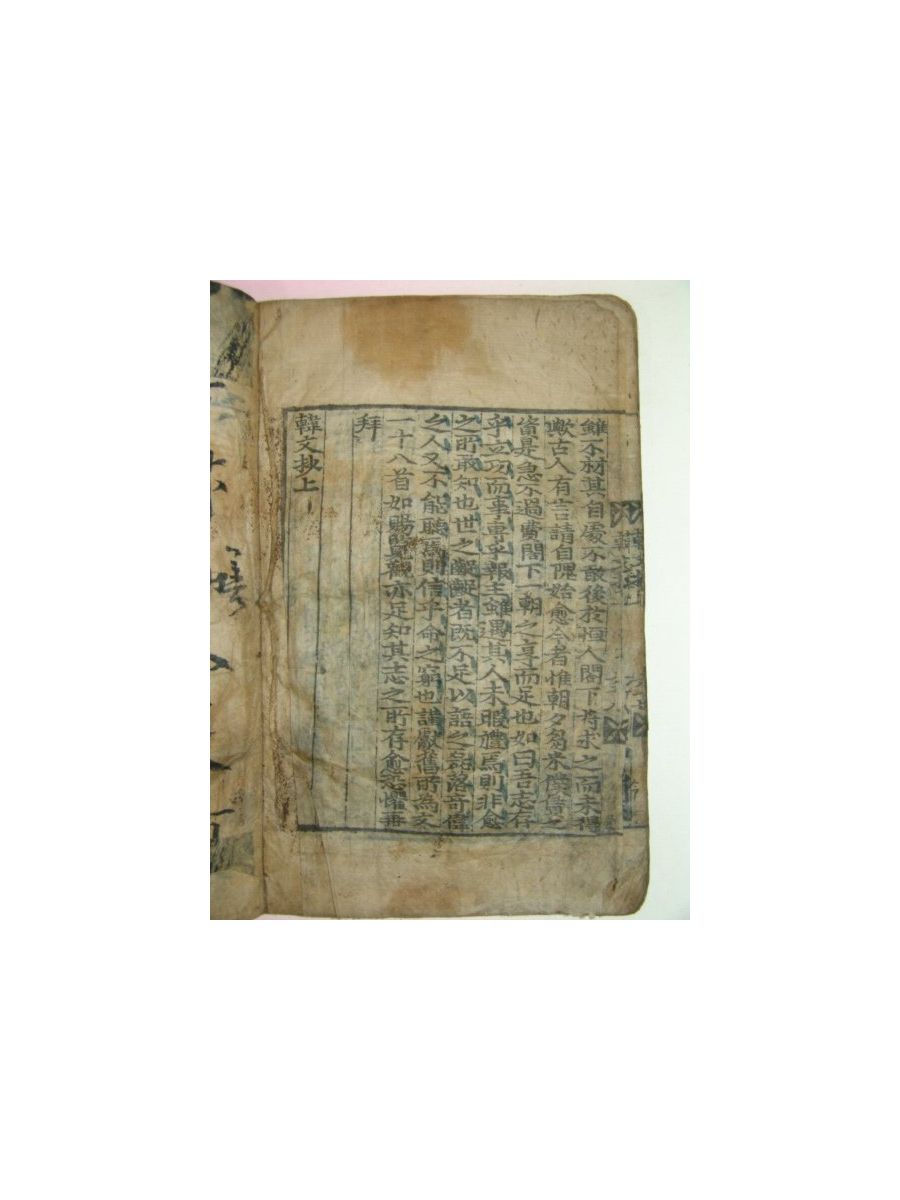 雖不材其自處不敢後於恒人閤下將求之而未得
歟古人有言請自隗始愈今者惟朝夕芻米僕賃之
資是急不過費閤下一朝之享而足也如曰吾志存
乎立功而事專乎報主雖遇其人未暇禮焉則非愈
之所敢知也世之齪齪者既不足以語之磊落奇偉
之人又不能聽焉則信乎命之窮也謹獻舊所為文
一十八首如賜覽觀亦足知其志之所存愈恐懼再
拜
韓文抄上